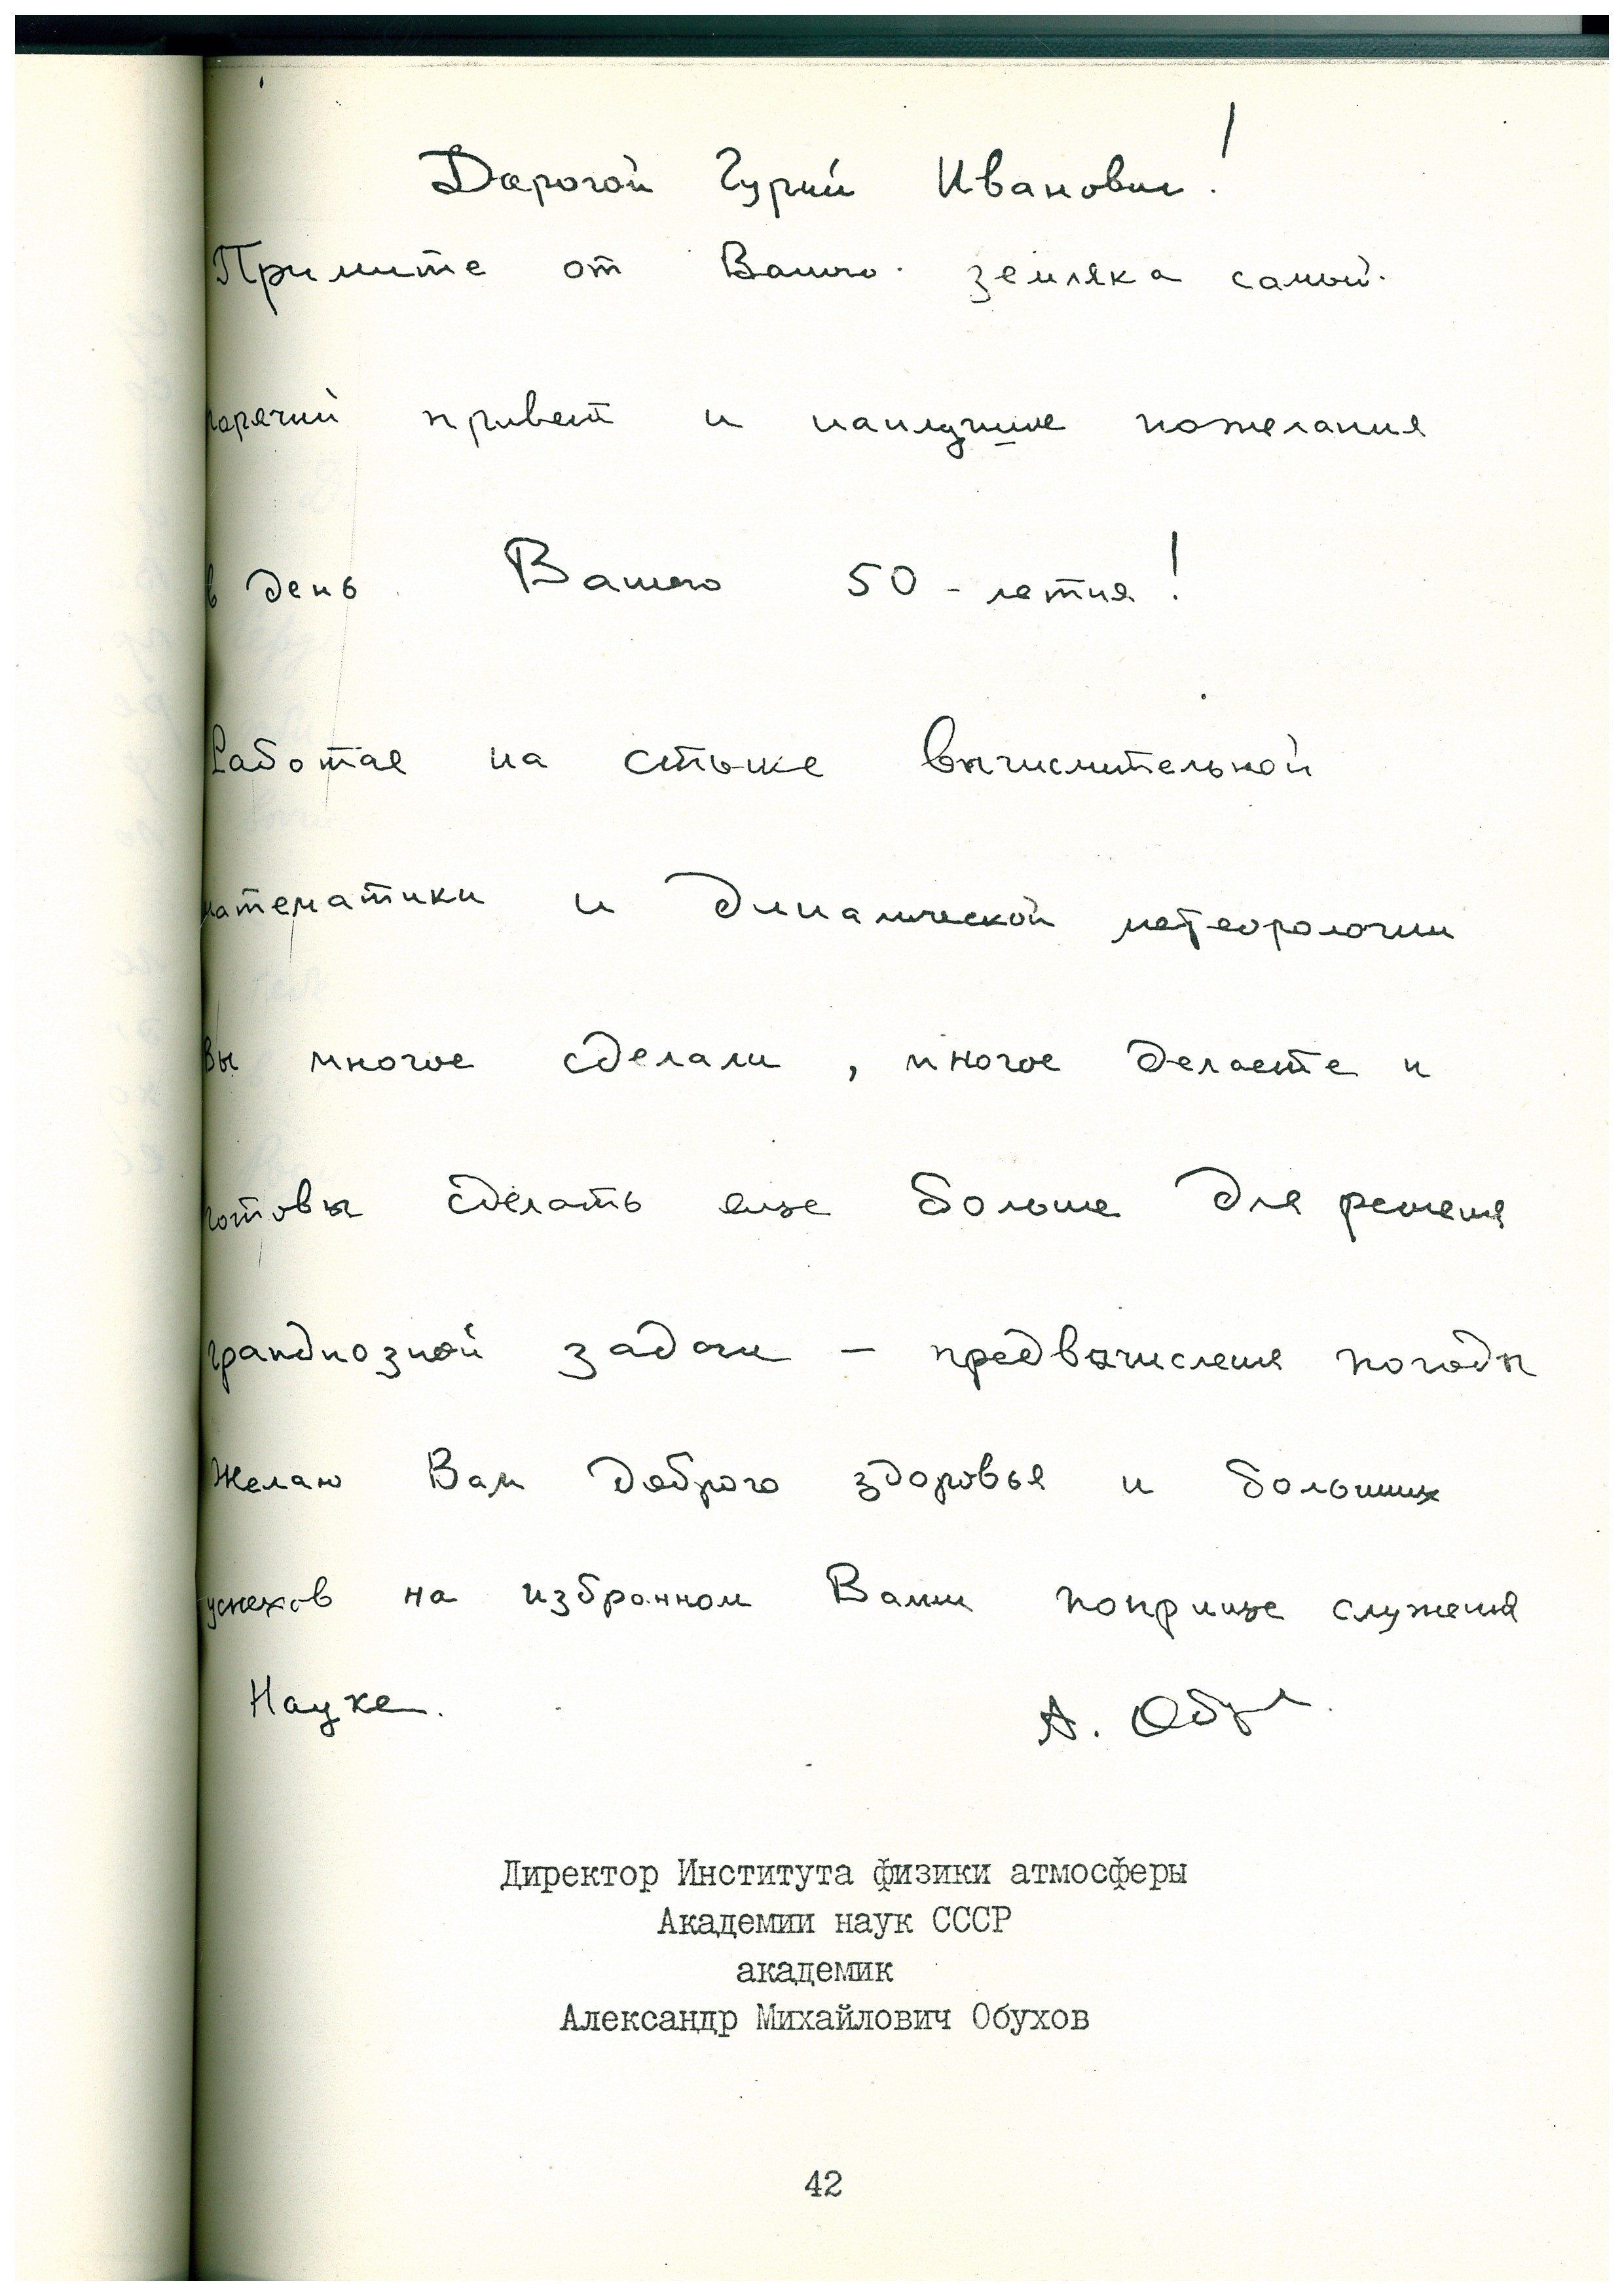 Дорогой Гурий Иванович!
Примите от Вашего земляка самый
горячий привет и наилучшие пожелания
в день Вашего 50-летия!
Работая на стыке вычислительной
математики и динамической метеорологии
Вы многое сделали, многое делаете и
готовы сделать еще больше для решения
грандиозной задачи – предвычисления погоды
Желаю Вам доброго здоровья и больших
успехов на избранном Вами поприще служения
Науке.
А. Обухов
Директор Института физики атмосферы
Академии наук СССР
академик
Александр Михайлович Обухов
42